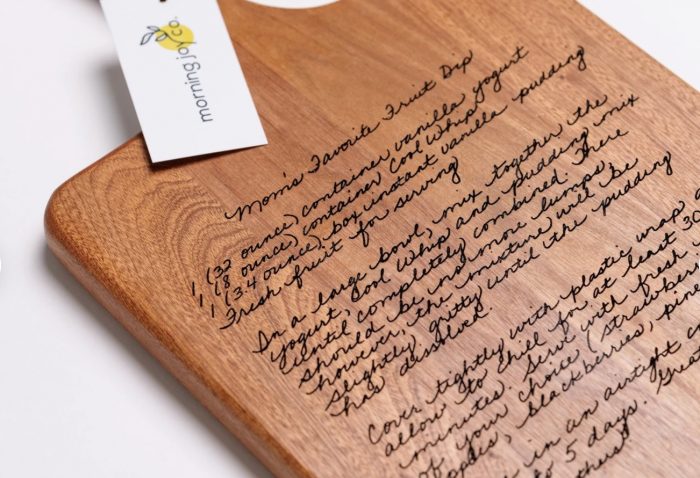 morning joy co.
Mom's Favorite Fruit Dip
1 (32 ounce) container vanilla yogurt
1 (8 ounce) container Cool Whip
1 (3.4 ounce) box instant vanilla pudding
Fresh fruit for serving
In a large bowl, mix together the
yogurt, Cool Whip and pudding mix
until completely combined. There
should be no more lumps,
however, the mixture will be
slightly gritty until the pudding
has dissolved.
Cover tightly with plastic wrap
allow to chill for at least 30
minutes. Serve with fresh
of your choice (strawberr
apples, blackberries, pine
in an airtight
to 5 days.